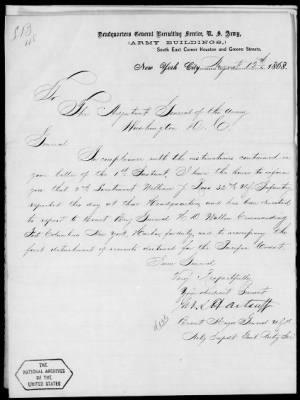 Headquarters General Recruiting Service, U. S. Army,
(ARMY BUILDINGS,)
South East Corner Houston and Greene Streets,
New York City, August 12th 1868.
To
The Adjutant General of the Army
Washington D. C.
General
In compliance with the instructions contained in
your letter of the 1st Instant, I have the honor to inform
you that 2nd Lieutenant William J. 32nd Infantry
reported this day at these Headquarters and has been directed
to report to Brevet Brig. General H. D. Wallen Commanding
Fort Columbus New York Harbor for duty and to accompany the
first detachment of recruits destined for the Pacific Coast.
I am General
Very Respectfully
Your obedient Servant
Brevet Major General U.S.A.
THE
NATIONAL ARCHIVES
OF THE
UNITED STATES